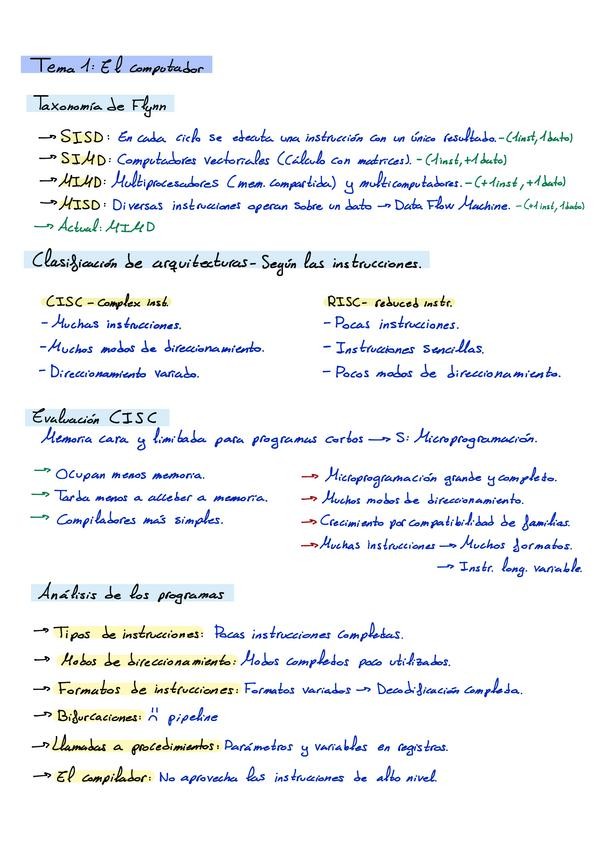 Tema 1: El computador
Taxonomía de Flynn
→ SISD: En cada ciclo se ejecuta una instrucción con un único resultado. - (1inst, 1dato)
→ SIMD: Computadores vectoriales (Cálculo con matrices). - (1inst, +1dato)
→ MIMD: Multiprocesadores (mem. compartida) y multicomputadores. - (+1inst, +1dato)
→ MISD: Diversas instrucciones operan sobre un dato → Data Flow Machine. - (+1inst, 1dato)
→ Actual: MIMD
Clasificación de arquitecturas - Según las instrucciones.
CISC - complex inst.
- Muchas instrucciones.
- Muchos modos de direccionamiento.
- Direccionamiento variado.
RISC - reduced instr.
- Pocas instrucciones.
- Instrucciones sencillas.
- Pocos modos de direccionamiento.
Evaluación CISC
Memoria cara y limitada para programas cortos → S: Microprogramación.
→ Ocupan menos memoria.
→ Tarda menos a acceder a memoria.
→ Compiladores más simples.
→ Microprogramación grande y compleja.
→ Muchos modos de direccionamiento.
→ Crecimiento por compatibilidad de familias.
→ Muchas instrucciones → Muchos formatos.
→ Instr. long. variable.
Análisis de los programas
→ Tipos de instrucciones: Pocas instrucciones complejas.
→ Modos de direccionamiento: Modos complejos poco utilizados.
→ Formatos de instrucciones: Formatos variados → Decodificación compleja.
→ Bifurcaciones: pipeline
→ Llamadas a procedimientos: Parámetros y variables en registros.
→ El compilador: No aprovecha las instrucciones de alto nivel.